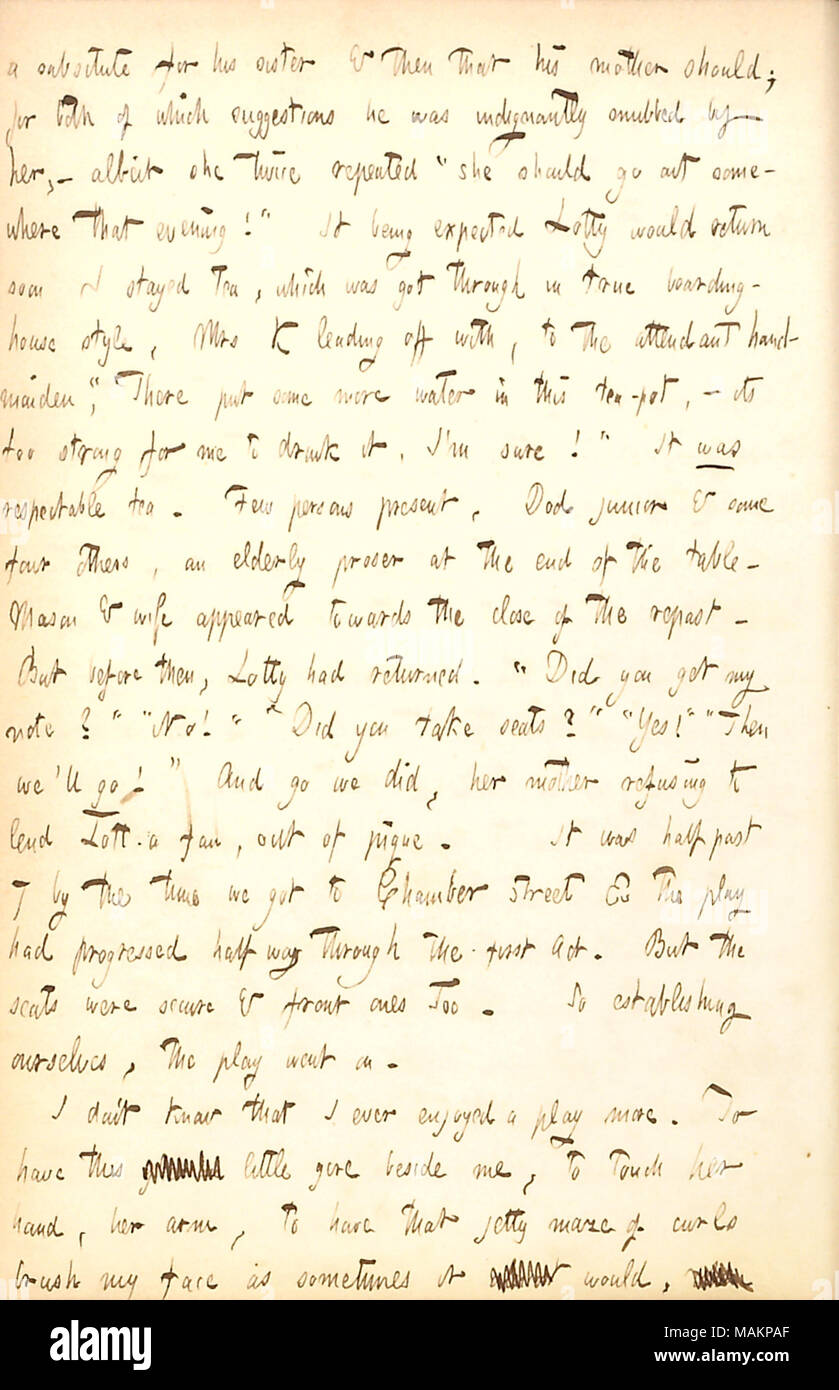 a subsitute for his sister & then that his mother should;
for both of which suggestions he was indignantly snubbed by
her, — albeit she twice repeated "she should go out some-
where that evening!" It being expected Lotty would return
soon I stayed tea, which was got through in true boarding-
house style, Mrs K leading off with, to the attendant hand-
maiden, "There put some more water in this tea-pot, — its
too strong for me to drink it, I'm sure!" It was
respectable tea. Few persons present, Dod junior & some
four others, an elderly proser at the end of the table.
Mason & wife appeared towards the close of the repast.
But before then, Lotty had returned. "Did you get my
note?" "No!" "Did you take seats?" "Yes!" "Then
we'll go!" And go we did, her mother refusing to
lend Lott. a fan, out of pique. It was half past
7 by the time we got to Chamber street & the play
had progressed half way through the first Act. But the
seats were secure & front ones too. So establishing
ourselves, the play went on.
I don't know that I ever enjoyed a play more. To
have this little girl beside me, to touch her
hand, her arm, to have that jetty maze of curls
brush my face as sometimes it would,
alamy
Image ID: MAKPAF
www.alamy.com